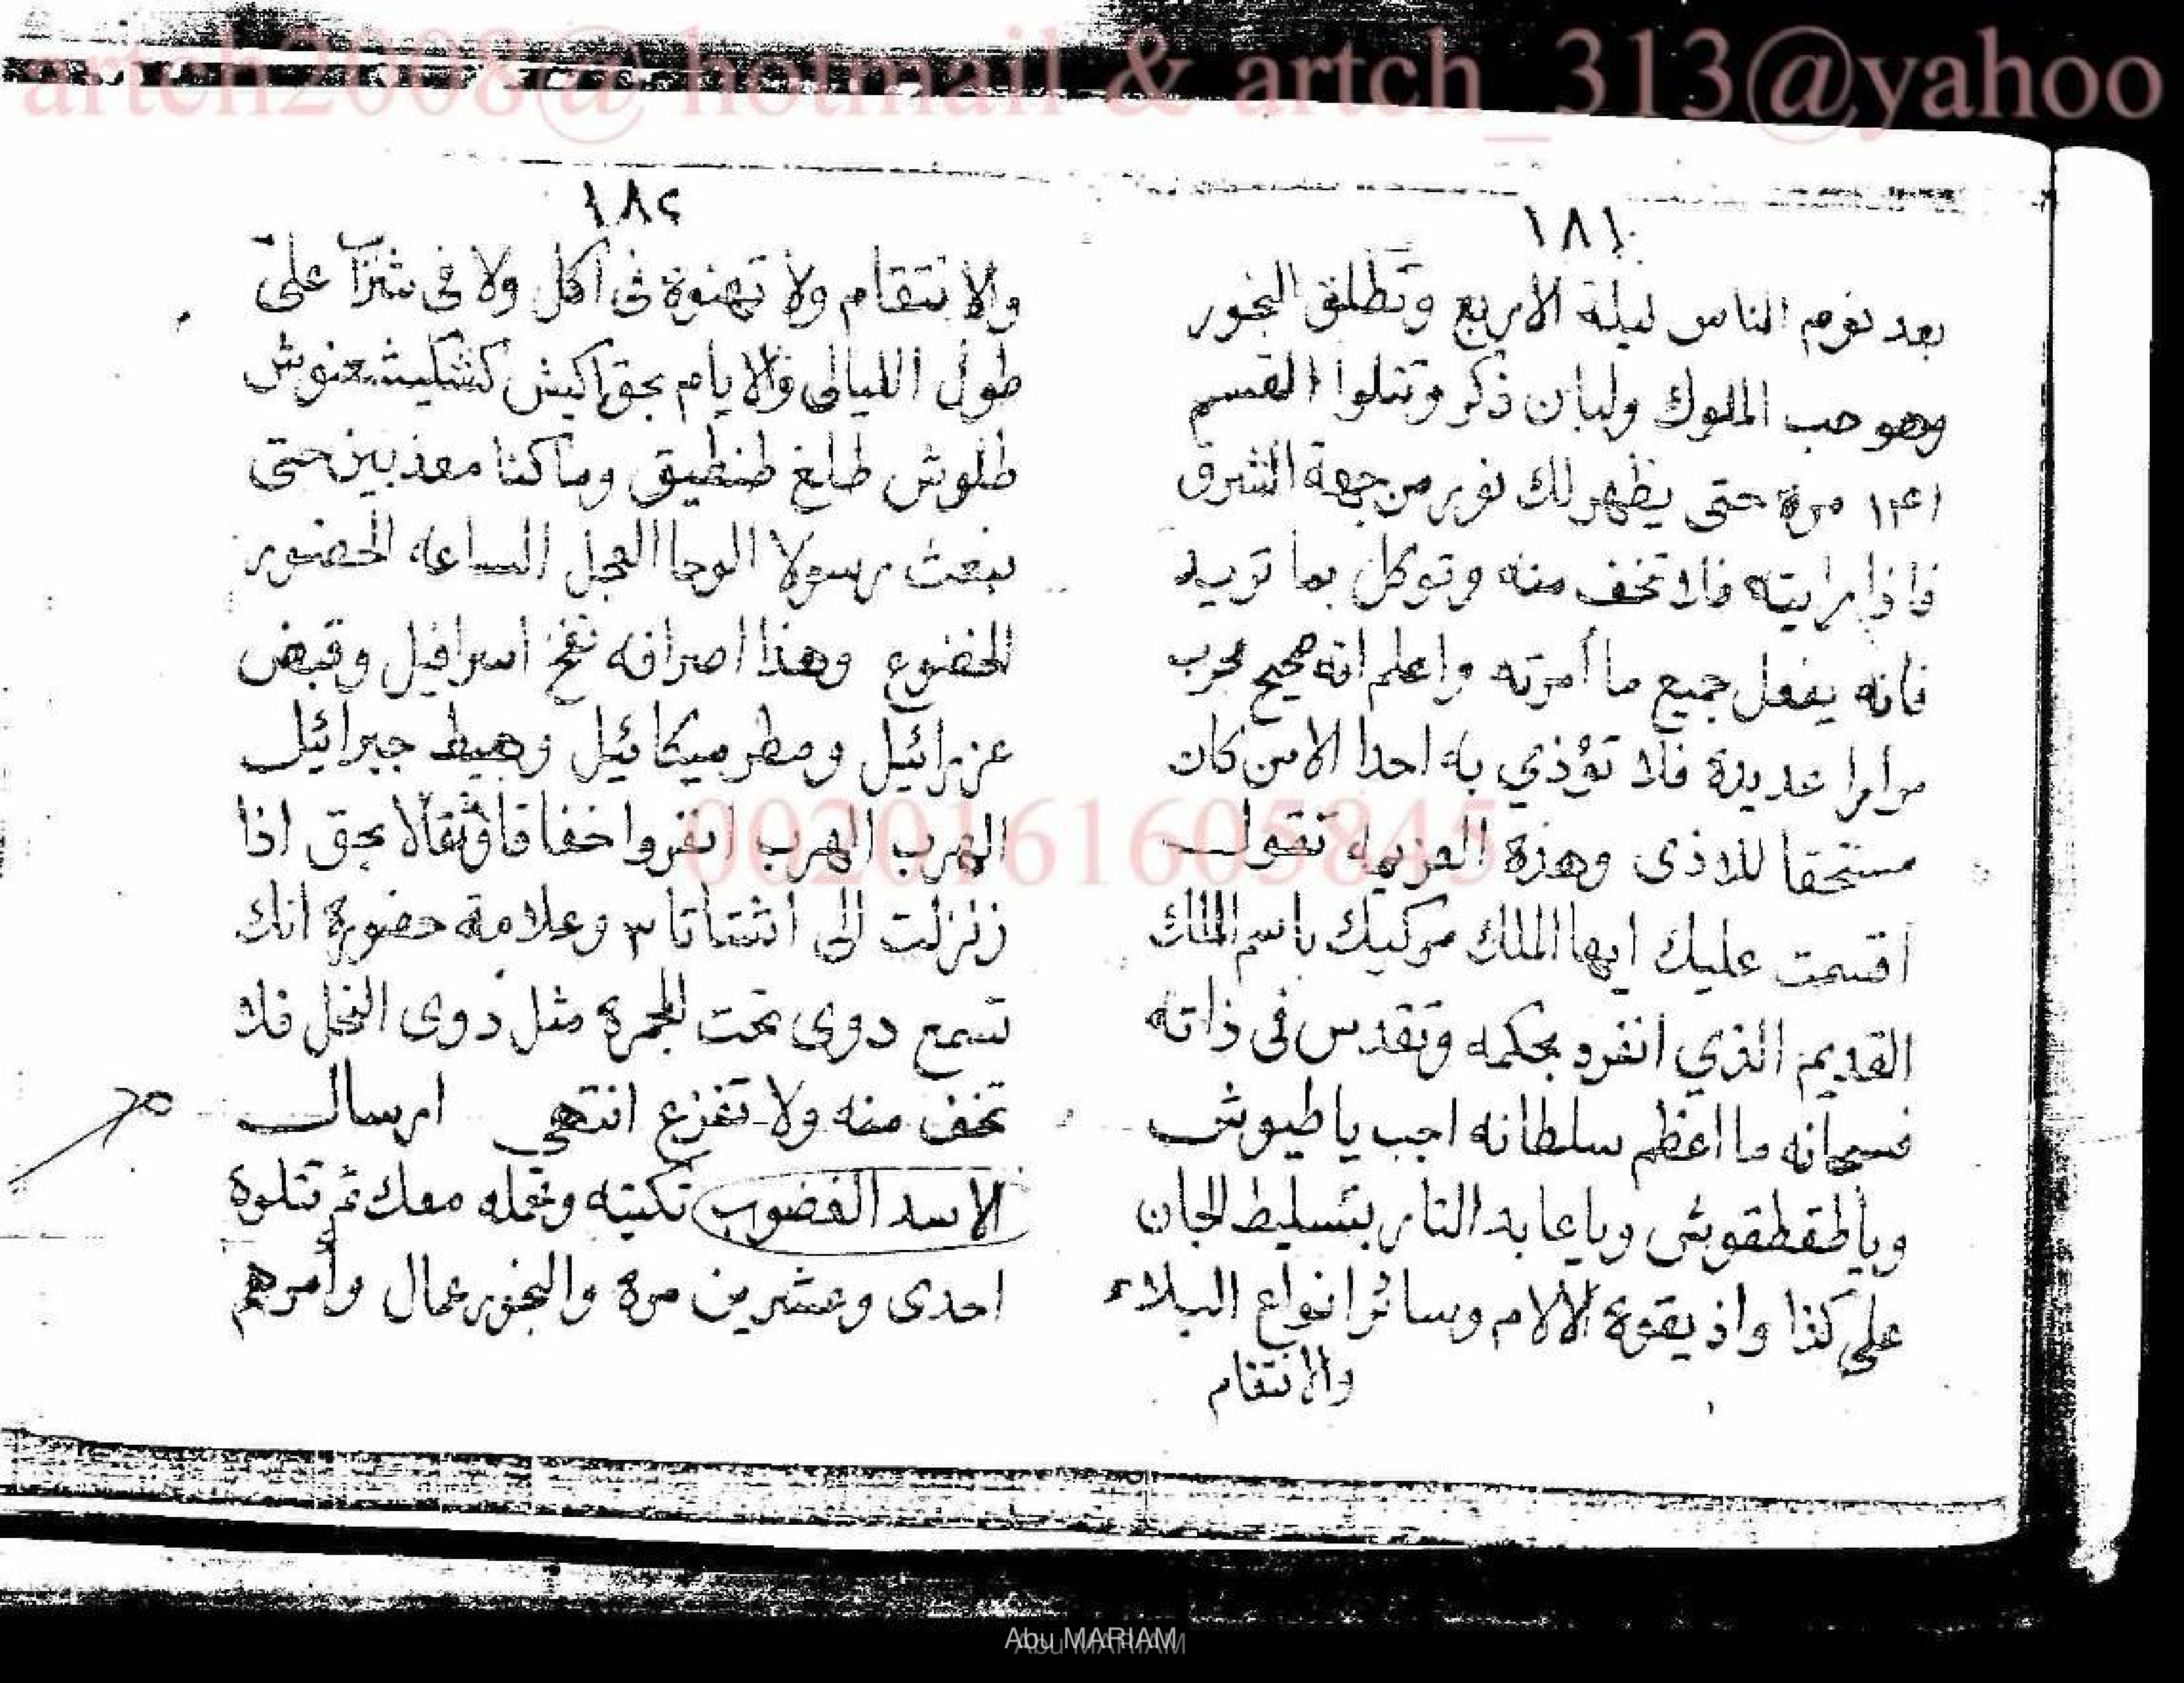 artch2008@ hotmail & artch_313@yahoo
١٨١
بعد نوم الناس ليلة الاربع وتطلق البخور
وهو حب الملوك ولبان ذكر وتتلوا القسم
مرة حتى يظهر لك نور من جهة الشرق
فاذا رايته فلا تخف منه وتوكل بما تريد
فانه يفعل جميع ما أمرته واعلم انه صحيح مجرب
مرارا عديدة فلا تؤذي به احدا الا من كان
مستحقا للاذى وهذه العزيمه تقول
أقسمت عليك ايها الملك مركيك باسم الملك
القديم الذي انفرد بحكمه وتقدس فى ذاته
فسبحانه ما اعظم سلطانه اجب يا طيوش
ويا طقطقوش ويا عابد النار بتسليط الجان
على كذا واذيقوه الالام وسائر انواع البلاء
والانتقام
١٨٢
والانتقام ولا تهنوة فى اكل ولا فى شراب على
طول الليالى والايام بحق اكيش كشكيشعنوش
طلوش طلغ طنطيق وما كنا معذبين حتى
نبعث رسولا الوحا العجل الساعه الحضور
الخضوع وهذا اصرافه نفخ اسرافيل وقبض
عزرائيل ومطر ميكائيل وهبط جبرائيل
الهرب الهرب انفروا خفافا وثقالا بحق اذا
زلزلت الى اشتاتا ٣ وعلامة حضوره انك
تسمع دوى تحت المجمرة مثل دوى النحل فلا
تخف منه ولا تفزع انتهى ارسال
الاسد الغضوب تكتبه وتحمله معك ثم تتلوه
احدى وعشرين مرة والبخور عمال وأمرهم
0020161605845
Abu MARIAM